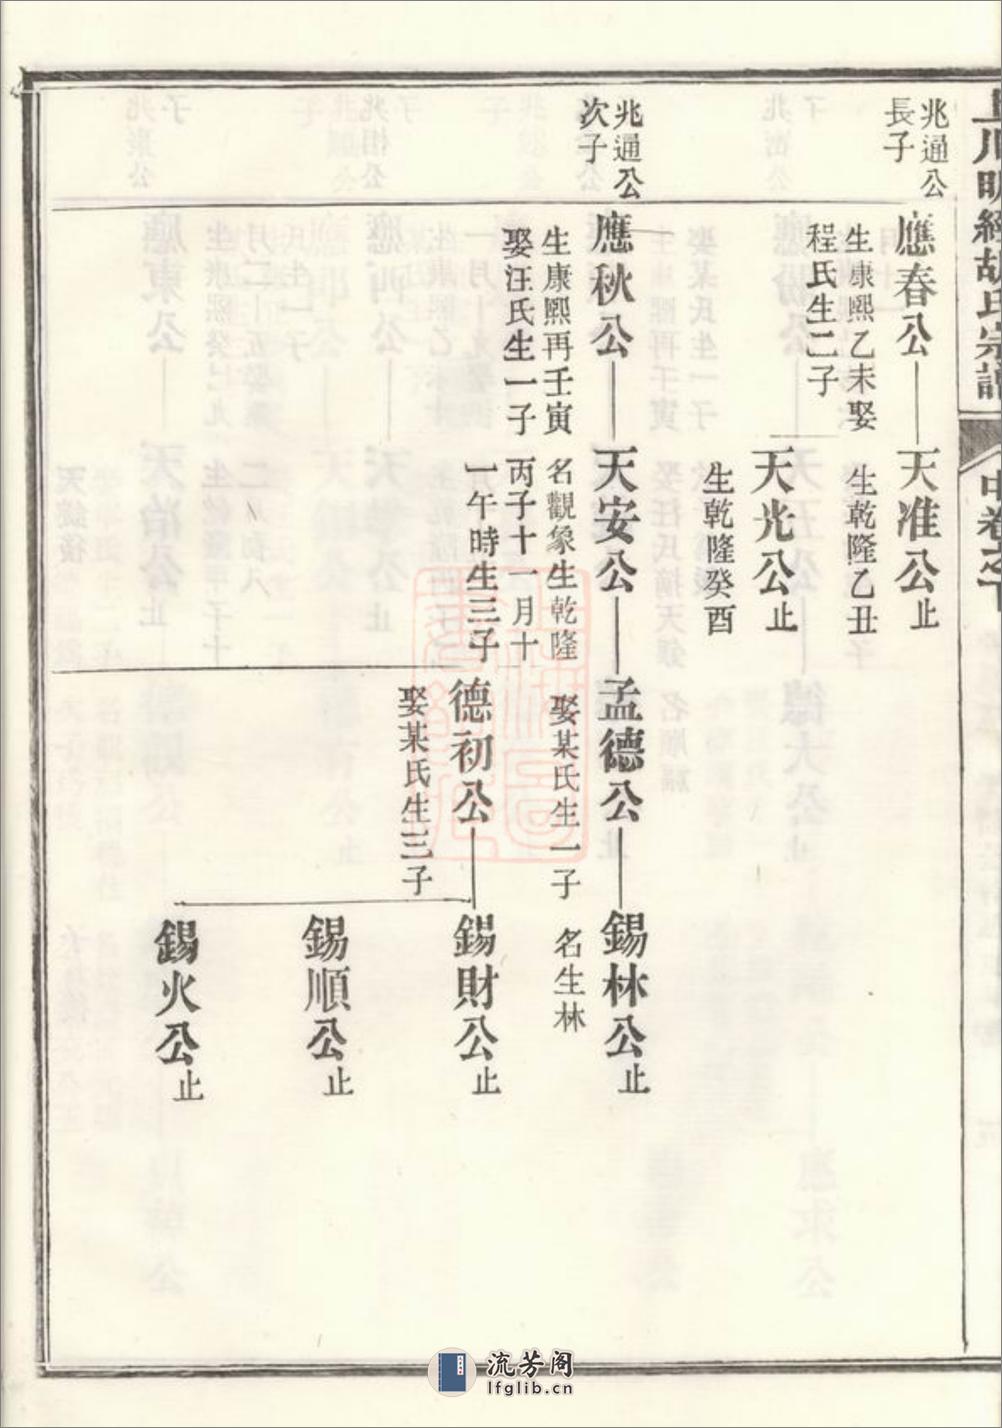 上川明經胡氏宗譜
中卷之下
兆通公
長子
應春公
生康熙乙未娶
程氏生二子
天准公止
生乾隆乙丑
天光公止
生乾隆癸酉
兆通公
次子
應秋公
生康熙再壬寅
娶汪氏生一子
天安公
名觀象生乾隆
丙子十一月十
一午時生三子
孟德公
娶某氏生一子
錫林公止
名生林
德初公
娶某氏生三子
錫財公止
錫順公止
錫火公止
流芳阁
lfglib.cn